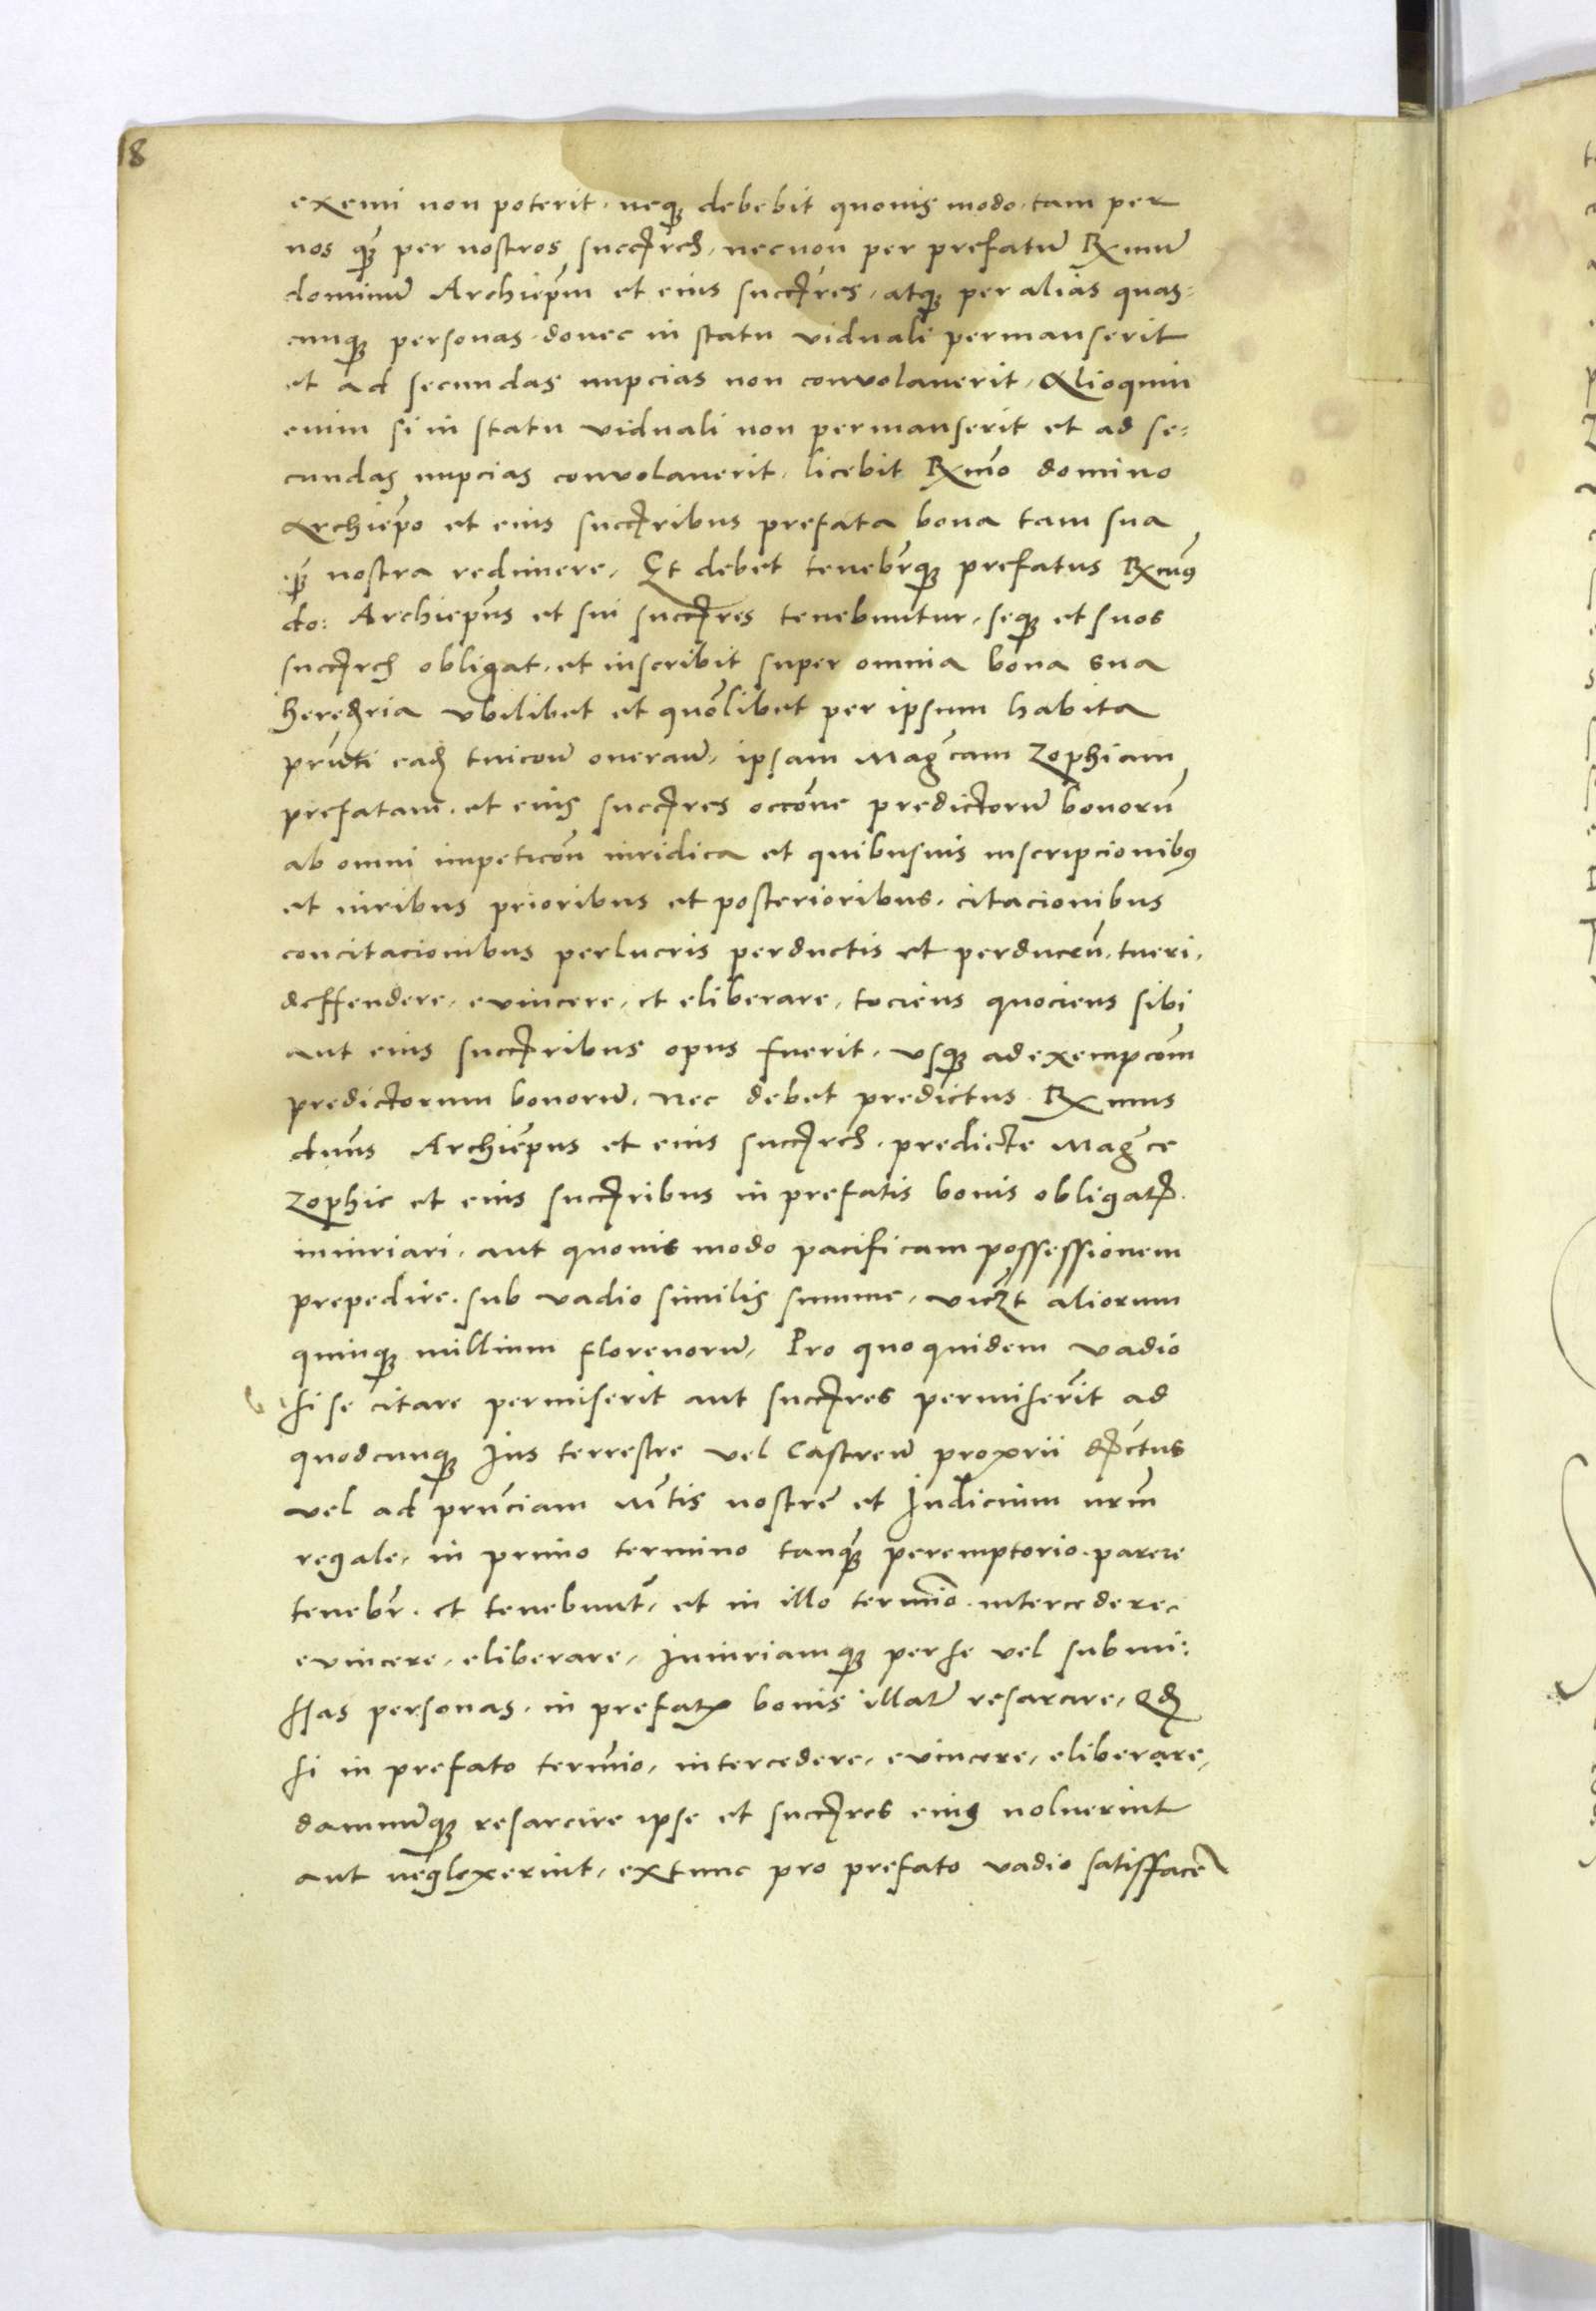 18
exemi non poterit. neqȝ debebit quouis modo. tam per
nos qȝ per nostros succrch. necnon per prefatū Rxmū
dominū Archiepm̄ et eius succres. atqȝ per alias quas=
cunqȝ personas. donec in statu viduali permanserit
et ad secundas nupcias non convolauerit. Alioquin
enim si in statu viduali non permanserit et ad se=
cundas nupcias convolauerit. licebit Rxmo domino
Archiepo et eius succribus prefata bona tam sua
qȝ nostra redimere. Et debet tenebrqȝ prefatus Rxmus
do: Archiepus et sui succres tenebuntur. seqȝ et suos
succrch obligat. et inscribit super omnia bona sua
heredria vbilibet et quōlibet per ipsum habita
eadȝ tuicoū oneraū. ipsam Magcam Zophiam
prefatam. et eius succres occōne predictorū bonorū
ab omni impeticōn iuridica et quibusuis inscripcionibȝ
et iuribus prioribus et posterioribus. citacionibus
concitacionibus perlucris perductis et perducēn. tueri.
deffendere. evincere. et eliberare. tociens quociens sibi
aut eius succribus opus fuerit. vsqȝ ad exempcōm
predictorum bonorū. Nec debet predictus Rxmus
dnus Archiepus et eius succrch. predicte Magce
Zophie et eius succribus in prefatis bonis obligatȝ.
iniuriari. aut quouis modo pacificam possessionem
prepedire. sub vadio similis summe. viczt aliorum
quinqȝ millium florenorū. Pro quoquidem vadio
si se citare permiserit aut succres permiserīt ad
quodcunqȝ Jus terrestre vel Castreū proxrii dctus
vel ad prnciam Mtis nostrē et Judicium nrm̄
regale. in primo termino tanqȝ peremptorio. parere
tenebr. et tenebunt̄. et in illo termīo. intercedere.
evincere. eliberare. Iniuriamqȝ per se vel submi=
ssas personas. in prefatȝ bonis illatā resarcire. Qdȝ
si in prefato termīo. intercedere. evincere. eliberare.
damnūqȝ resarcire ipse et succres eius noluerint
aut neglexerint. extunc pro prefato vadio satisfacē